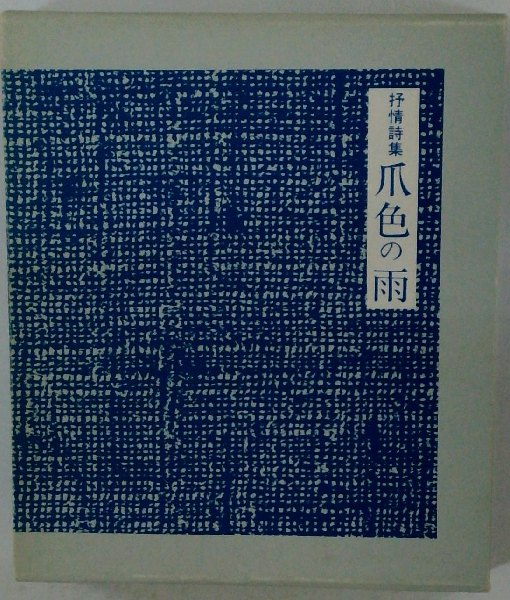 抒情詩集
爪色の雨